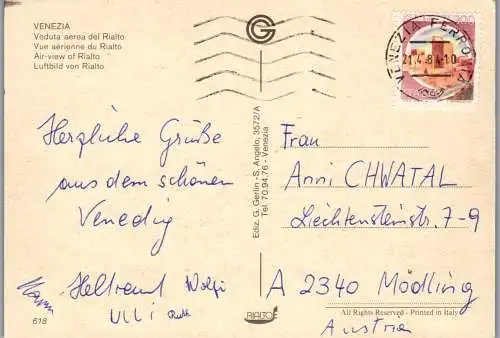 VENEZIA
Veduta aerea del Rialto
Vue aérienne du Rialto
Air-view of Rialto
Luftbild von Rialto
Herzliche Grüße
aus dem schönen
Venedig
Heltraut Wolfi
Ulli Ruth
618
Ediz. G. Gerlin - S. Angelo, 3572/A
Tel. 70.94.76 - Venezia
VENEZIA FERROVIA
21.4.84-10
Frau
Anni CHWATAL
Liechtensteinstr. 7-9
A 2340 Mödling
All Rights Reserved - Printed in Italy
RIALTO
Austria